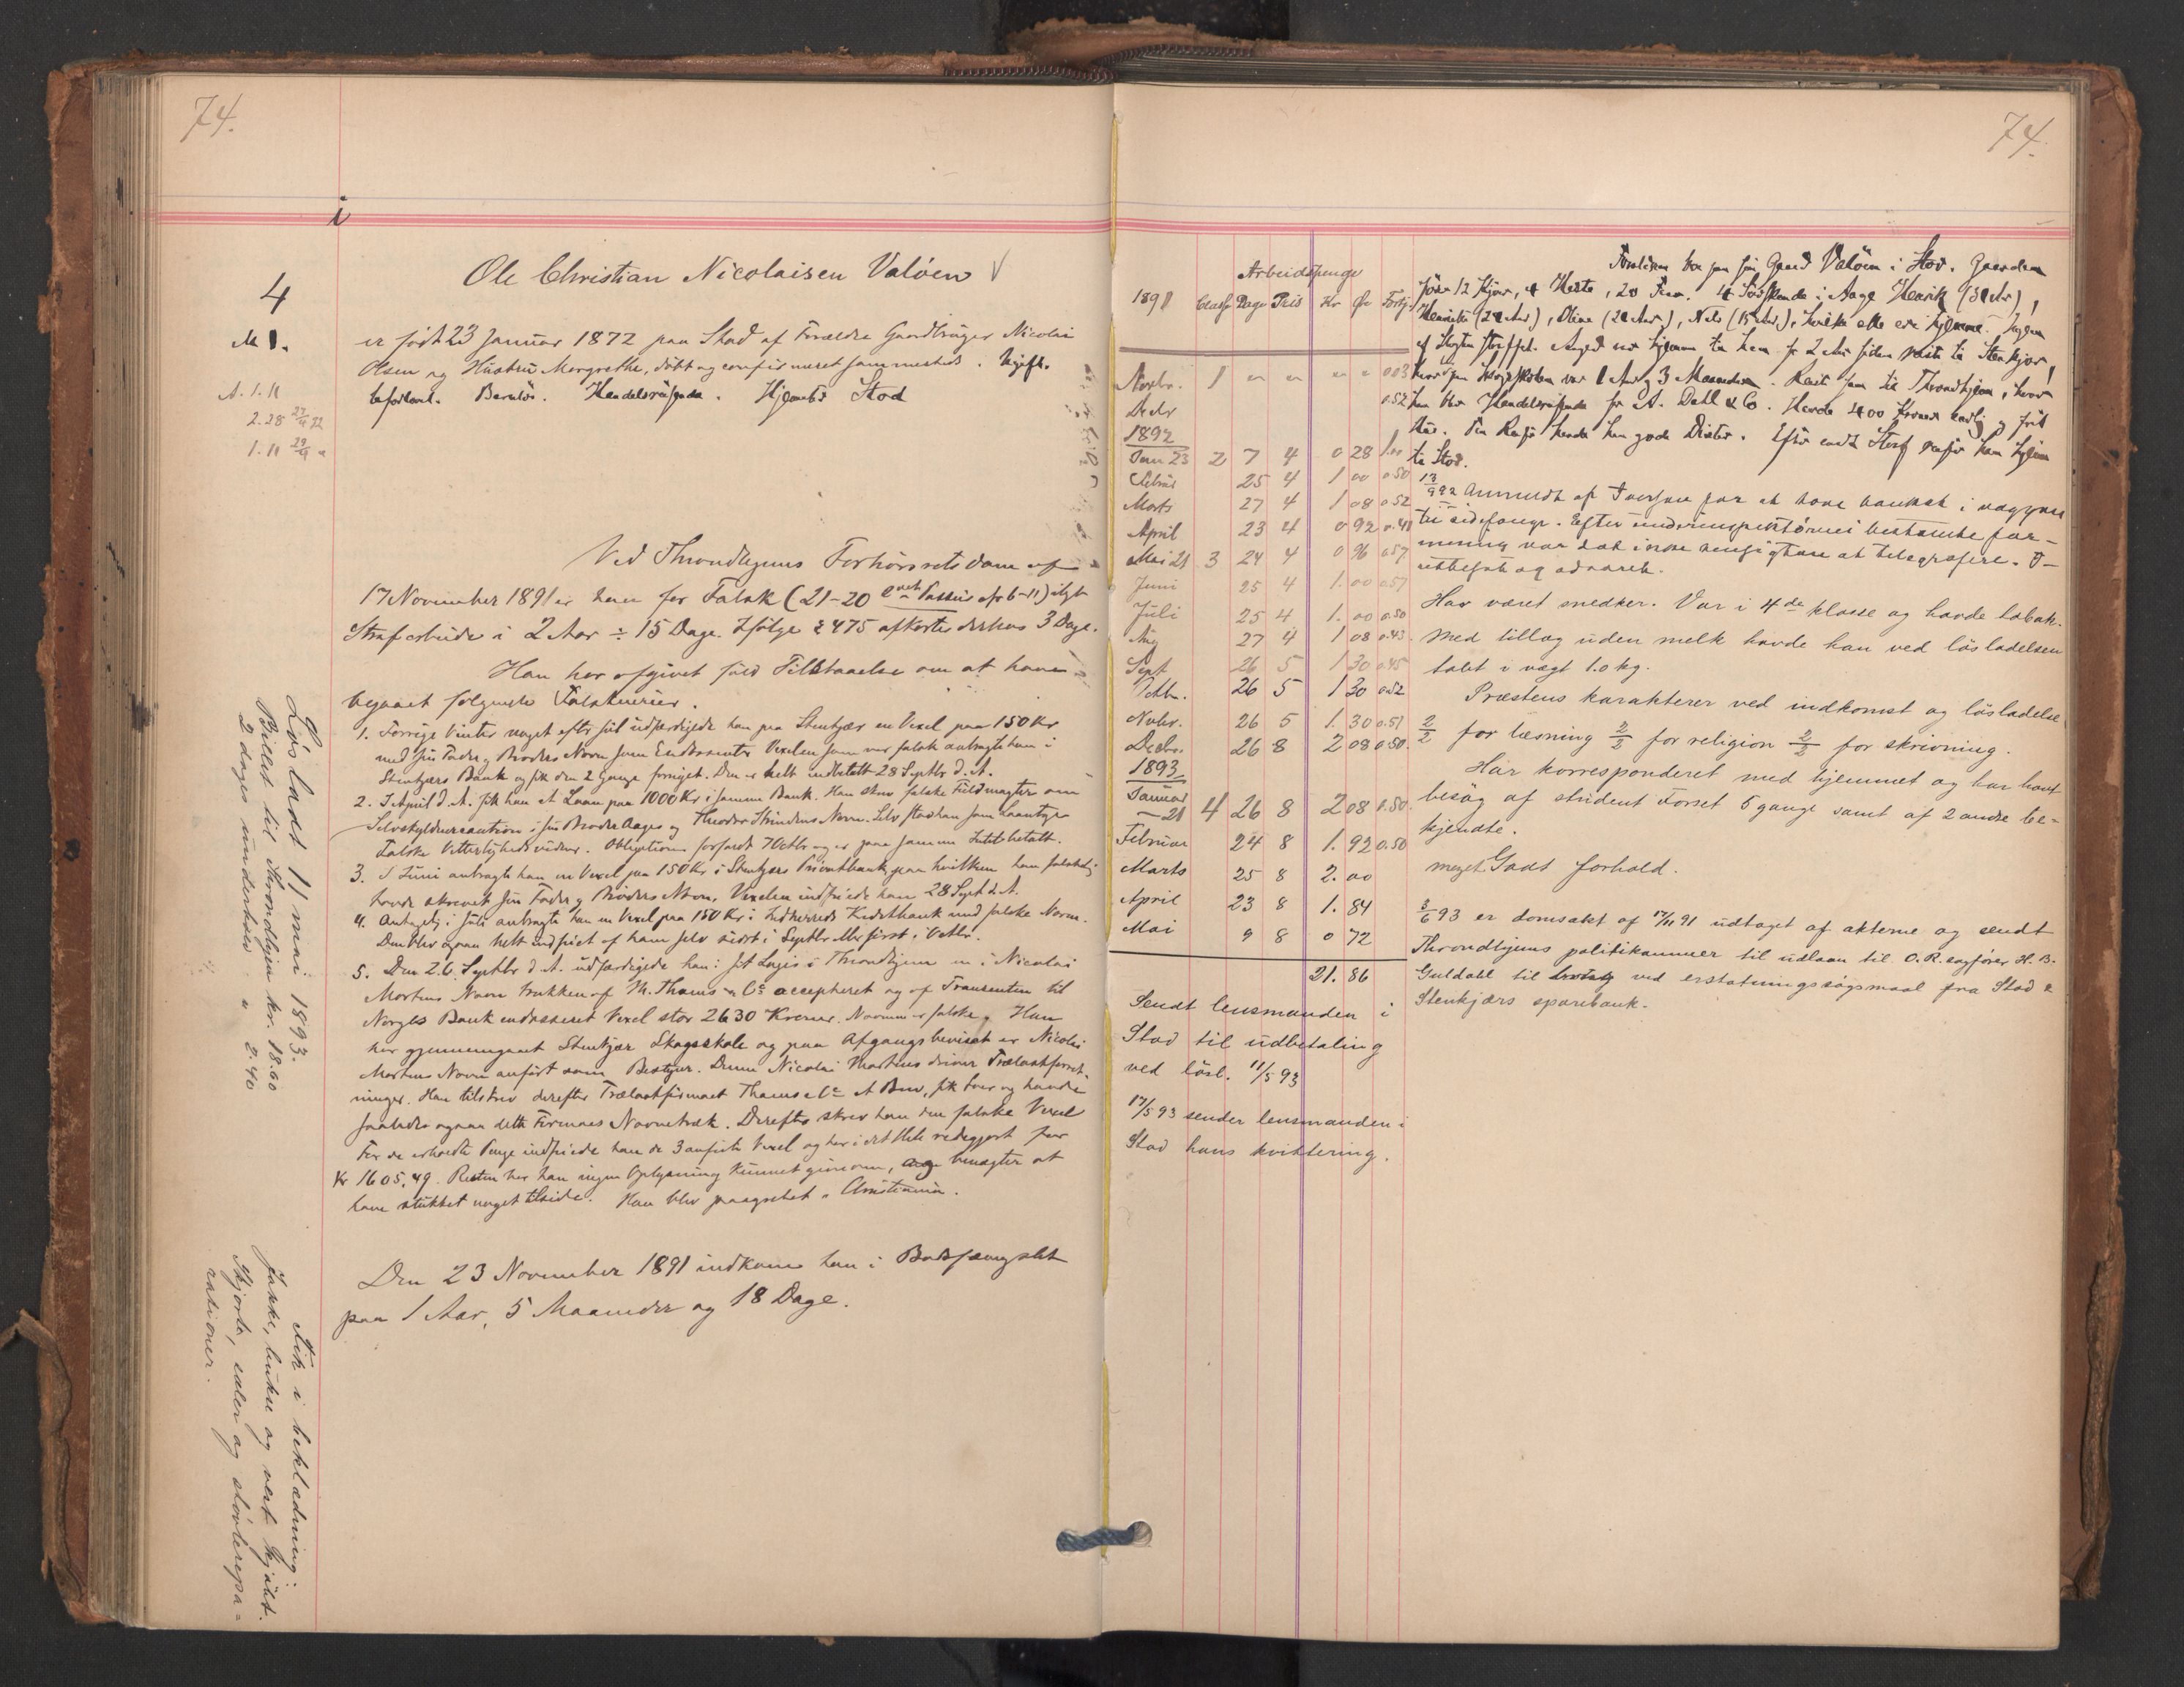 74.
i
4
M 1.
A. 1. 11
2. 28 27/4 92
1. 11 29/4
Ole Christian Nicolaisen Valöen V
er född 23 Januar 1872 paa Stod af Forældre Gaardbruger Nicolai
Olsen og Hustru Margrethe, döbt og confirmeret sammesteds. Ugift.
Barnlös. Handelsreisende. Hjemsted Stod
Ved Throndhjems Forhörsrets dom af
17 November 1891 er han for Falsk (21-20 cnfr 6-11) ilagt
Strafarbeide i 2 Aar ÷ 15 Dage. Ifölge § 475 afkortes derhos 3 Dage.
Han har afgivet fuld Tilstaaelse om at have
begaaet følgende Falsknerier.
1. Forrige Vinter noget efter Jul udfærdigede han paa Stenkjær en Vexel paa 150 Kr
med sin Fader og Broders Navn som Endossenter. Vexelen som var falsk anbragte han i
Stenkjærs Bank og fik den 2 Gange fornyet. Den er helt indbetalt 28 Septbr d. A.
2. I April d. A. fik han et Laan paa 1000 Kr i samme Bank. Han skrev falske Fuldmagter om
Selvskyldnercaution i sin Broder Aages og Theodor Strindens Navn. Selv stod han som Laantager
Falske Vitterlighedsvidner. Obligationen forfaldt 7 Octbr og er paa samme Tid betalt.
3. I Juni anbragte han en Vexel paa 150 Kr i Stenkjærs Privatbank, paa hvilken han falskelig
havde skrevet sin Fader og Broders Navn. Vexelen indfriede han 28 Sept d. A.
4. Antagelig i Juli anbragte han en Vexel paa 150 Kr i Indherreds Kreditbank med falske Navne.
Den blev ogsaa helt indfriet af ham selv sidst i Septbr eller först i Octbr.
5. Den 26. Septbr d. A. udfærdigede han i sit Logis i Throndhjem en i Nicolai
Mortens Navn trukken af M. Thams & Co accepteret og af Trassenten til
Norges Bank endosseret Vexel stor 2630 Kroner. Navnene er falske. Han
har gjennemgaaet Stenkjær Skogskole og paa Afgangsbeviset er Nicolai
Mortens Navn anført som Bestyrer. Denne Nicolai Mortens driver Trælastforret-
ninger. Han tilskrev derefter Trælastfirmaet Thams & Co et Brev, fik Svar og havde
saaledes ogsaa dette Firmaes Navnetræk. Derefter skrev han den falske Vexel
For de erholdte Penge indfriede han de 3 anførte Vexel og har i det Hele redegjort for
Kr 1605,49. Resten har han ingen Oplysning kunnet give om, og benægter at
have stukket noget tilside. Han blev paagrebet i Christiania.
Den 23 November 1891 indkom han i Bodsfængslet
paa 1 Aar, 5 Maaneder og 18 Dage.
Lösladt 11 mai 1893.
Billet til Throndhjem kr. 18.60
2 dages underhold " 2.40
Fik i beklædning:
Jakke, bukse og vest kjöbt.
Skjorte, seler og störlerepa=
rationer.
74.
1891 Classe Dage Pris Arbeidspenge Kr Öre Forhj.
Novbr. 1 " " " " 0.03
Decbr 0.52
1892
Jan 23 2 7 4 0 28 1.00
Febrür 25 4 1 00 0.50
Marts 27 4 1 08 0.52
April 23 4 0 92 0.41
Mai 21 3 24 4 0 96 0.57
Juni 25 4 1.00 0.57
Juli 25 4 1.00 0.50
Aug 27 4 1 08 0.43
Sept 26 5 1 30 0.45
Octbr. 26 5 1 30 0.52
Novbr. 26 5 1.30 0.51
Decbr. 26 8 2 08 0.50
1893
Januar
— 21 4 26 8 2 08 0.50
Februar 24 8 1.92 0.50
Marts 25 8 2.00
April 23 8 1.84
Mai 9 8 0 72
21.86
Sendt lensmanden i
Stod til udbetaling
ved lösl. 11/5 93
17/5 93 sender lensmanden i
Stod hans kvittering.
Forældrene bor paa sin Gaard Valöen i Stod. Gaarden
föder 12 Kjør, 4 Heste, 20 Faar. 4 Södskende: Aage Henrik (31 Ar),
Henrikke (24 Aar), Oline (20 Aar), Nels (15 Aar), hvilke alle ere hjemme. Ingen
af Slægten straffet. Været hjemme til han for 2 Aar siden reiste til Stenkjær,
hvor paa Skogskolen var 1 Aar og 3 Maaneder. Reiste saa til Throndhjem, hvor
han blev Handelsreisende for A. Dahl & Co. Havde 400 Kroner aarlig og frit
Hus. Paa Reiser havde han gode Diæter. Efter endt Straf reiser han hjem
til Stod.
13/9 92 Anmeldt af Iversen for at have banket i væggen
til sidefange. Efter underinspektörens bestemte for-
mening var det ikke hensigten at telegrafere. I-
rettesat og advaret.
Har været snedker. Var i 4de klasse og havde tobak.
Med tillæg uden melk havde han ved lösladelsen
tabt i vægt 1.0 kg.
Præstens karakterer ved indkomst og lösladelse
2/2 for læsning 2/2 for religion 2/2 for skrivning.
Har korresponderet med hjemmet og har havt
besög af student Forset 5 gange samt af 2 andre be-
kjendte.
meget Godt forhold.
3/6 93 er domsakt af 17/11 91 udtaget af akterne og sendt
Throndhjems politikammer til udlaan til O. R. sagförer H. B.
Guldahl til ved erstatningssögsmaal fra Stod &
Stenkjærs sparebank.